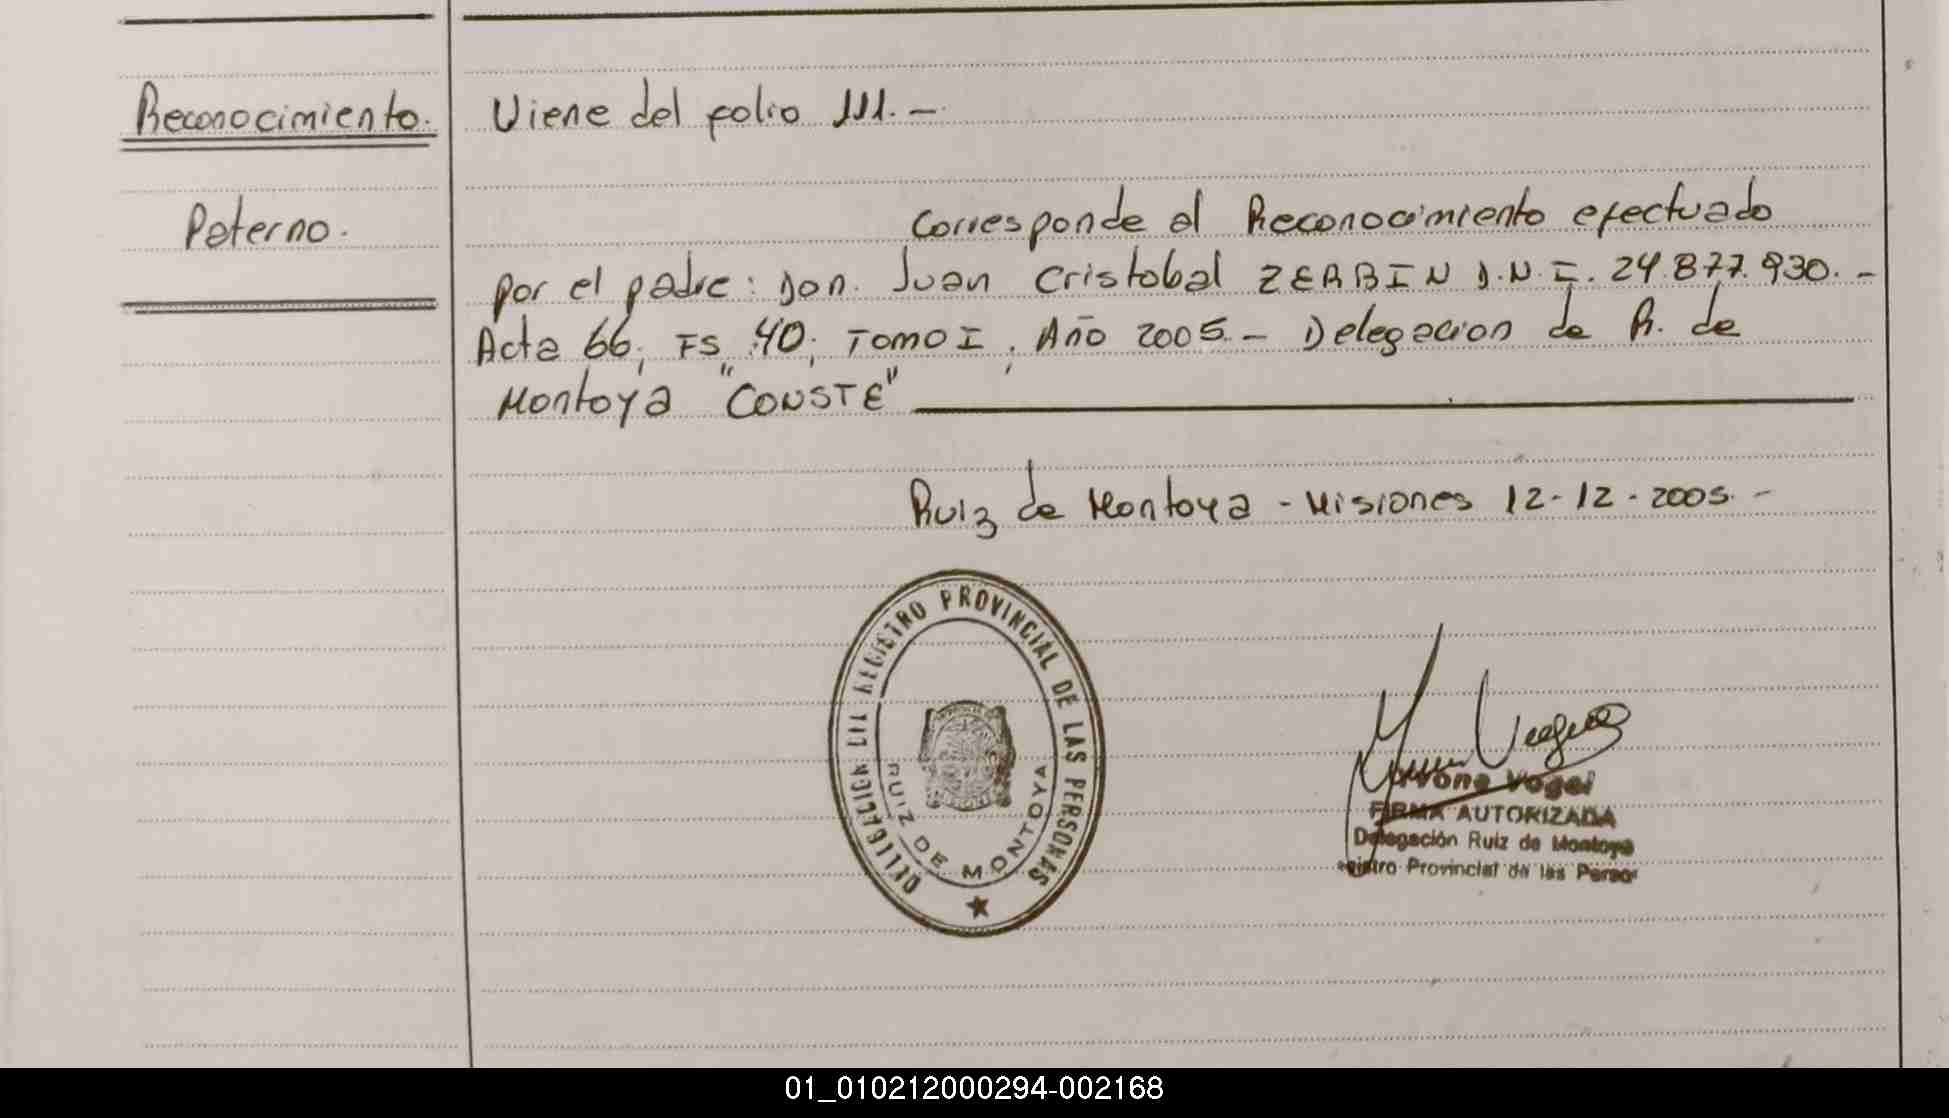 Reconocimiento.
Paterno.
Viene del folio 111.-
Corresponde al Reconocimiento efectuado
por el padre: Don. Juan Cristobal ZERBIN D.N.I. 24.877.930.-
Acta 66, FS 40, Tomo I, Año 2005.- Delegacion de R. de
Montoya "CONSTE"
Ruiz de Montoya - Misiones 12-12-2005.-
DELEGACION DEL REGISTRO PROVINCIAL DE LAS PERSONAS
RUIZ DE MONTOYA
Ivone Vogel
FIRMA AUTORIZADA
Delegación Ruiz de Montoya
Provincial de las
01_010212000294-002168